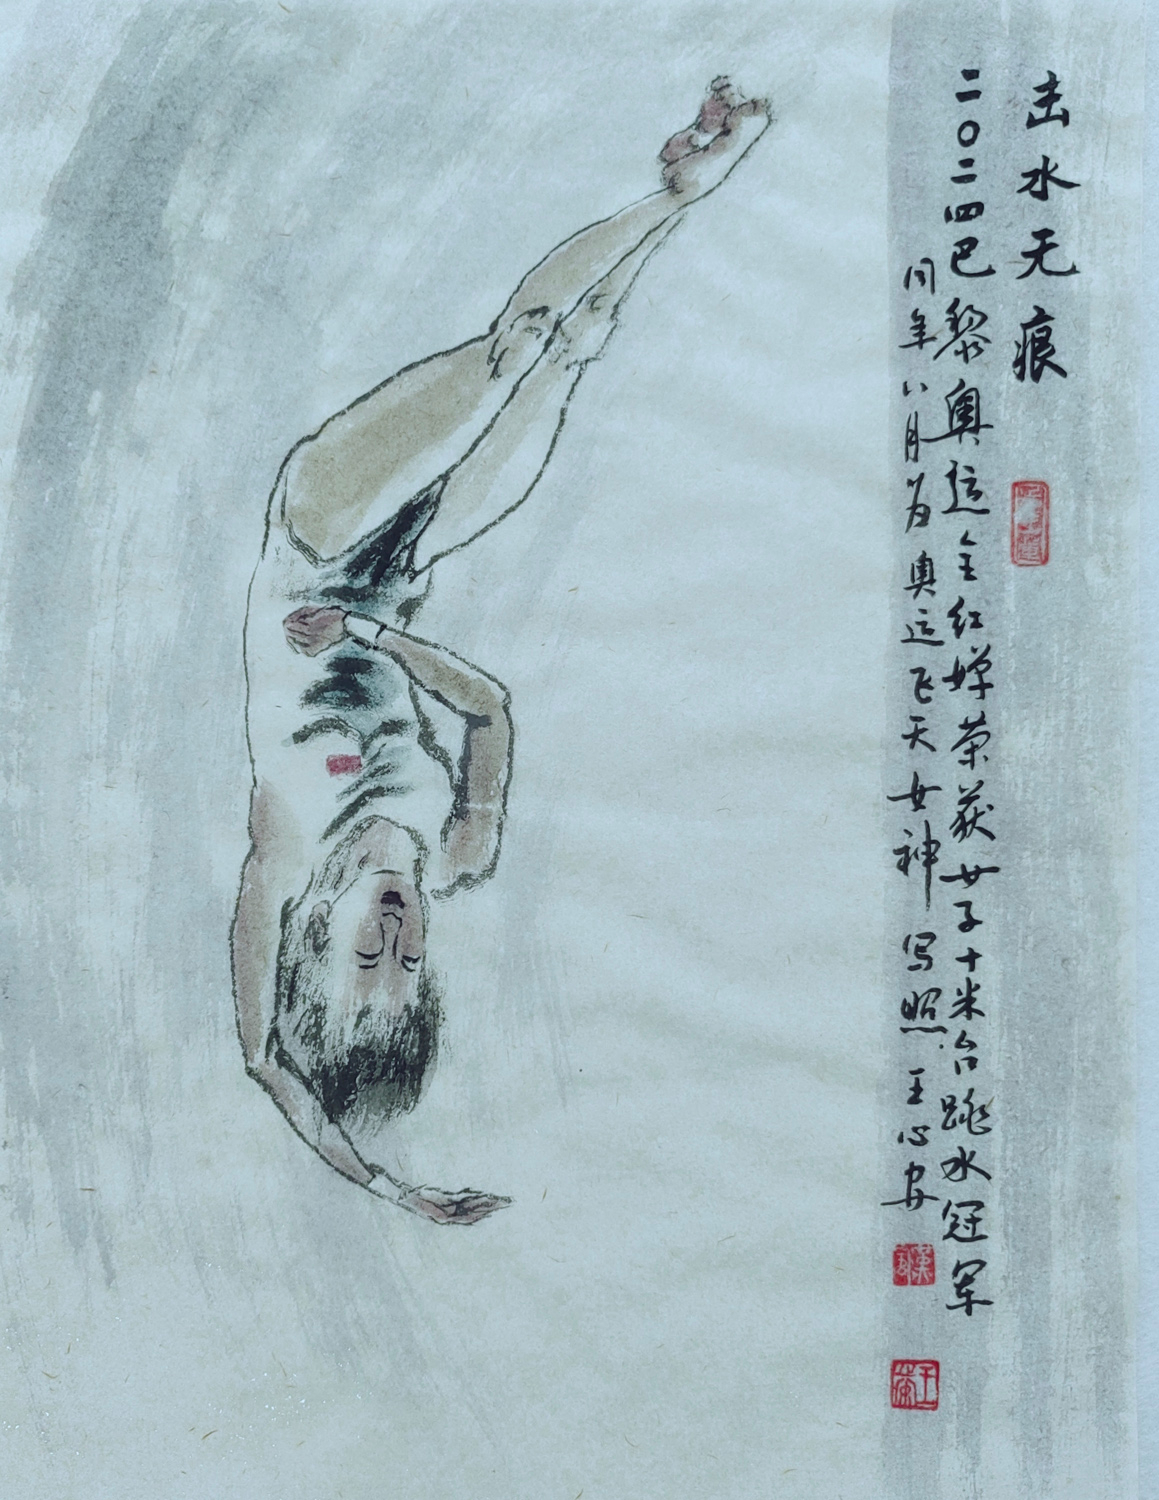 击水无痕
二〇二四巴黎奥运全红婵荣获女子十米台跳水冠军
同年八月为奥运飞天女神写照 王心安